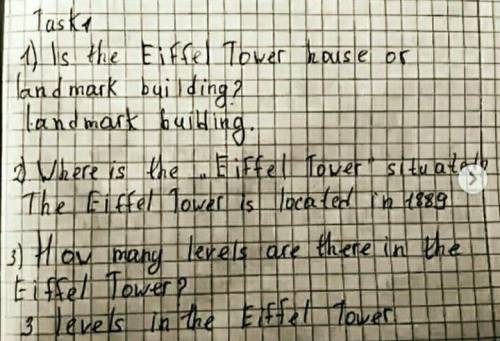 Task 1
1) Is the Eiffel Tower house or
landmark building?
Landmark building.
2) Where is the „Eiffel Tower" situated?
The Eiffel Tower is located in 1889
3) How many levels are there in the
Eiffel Tower?
3 levels in the Eiffel Tower.